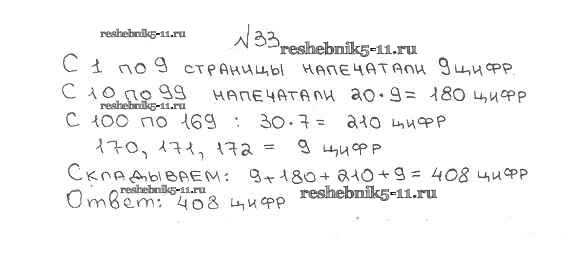 reshebnik5-11.ru
№33
reshebnik5-11.ru
С 1 по 9 страницы напечатали 9 цифр.
С 10 по 99 напечатали 20·9= 180 цифр
reshebnik5-11.ru
С 100 по 169 : 30·7= 210 цифр
170, 171, 172 = 9 цифр
Складываем: 9+180+210+9=408 цифр
reshebnik5-11.ru
reshebnik5-11.ru
Ответ: 408 цифр